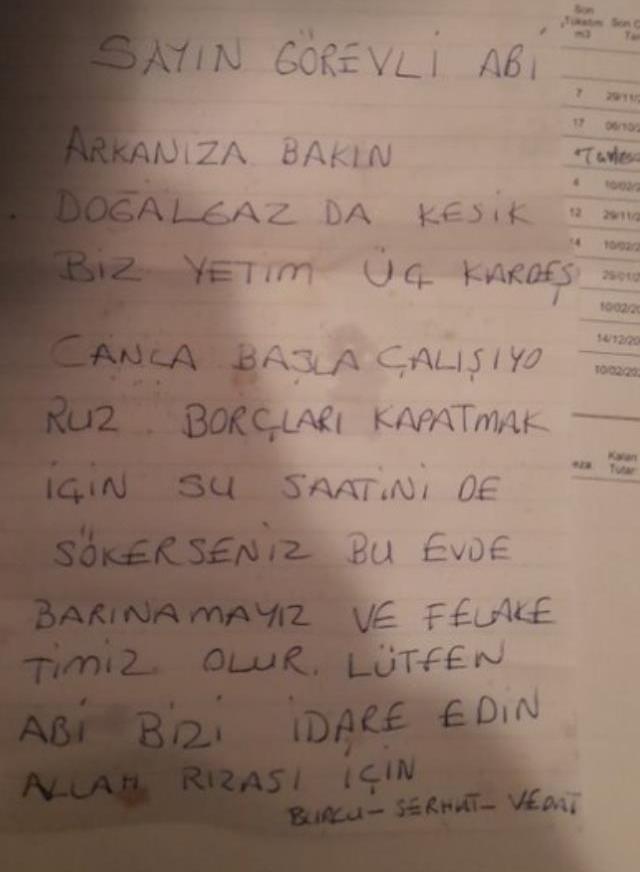 SAYIN GÖREVLİ ABİ
ARKANIZA BAKIN
DOĞALGAZ DA KESİK
BİZ YETİM ÜÇ KARDEŞ
CANLA BAŞLA ÇALIŞIYO
RUZ. BORÇLARI KAPATMAK
İÇİN SU SAATİNİ DE
SÖKERSENİZ BU EVDE
BARINAMAYIZ VE FELAKE
TİMİZ OLUR. LÜTFEN
ABİ BİZİ İDARE EDİN
ALLAH RIZASI İÇİN
BURCU - SERHAT - VEDAT
Son
Tüketim Son
m3
7 29/11/2
17 06/10/2
4 10/02/2
12 29/11/2
14 10/02/2
29/01/2
10/02/20
14/12/20
10/02/20
Kalan
Tutar